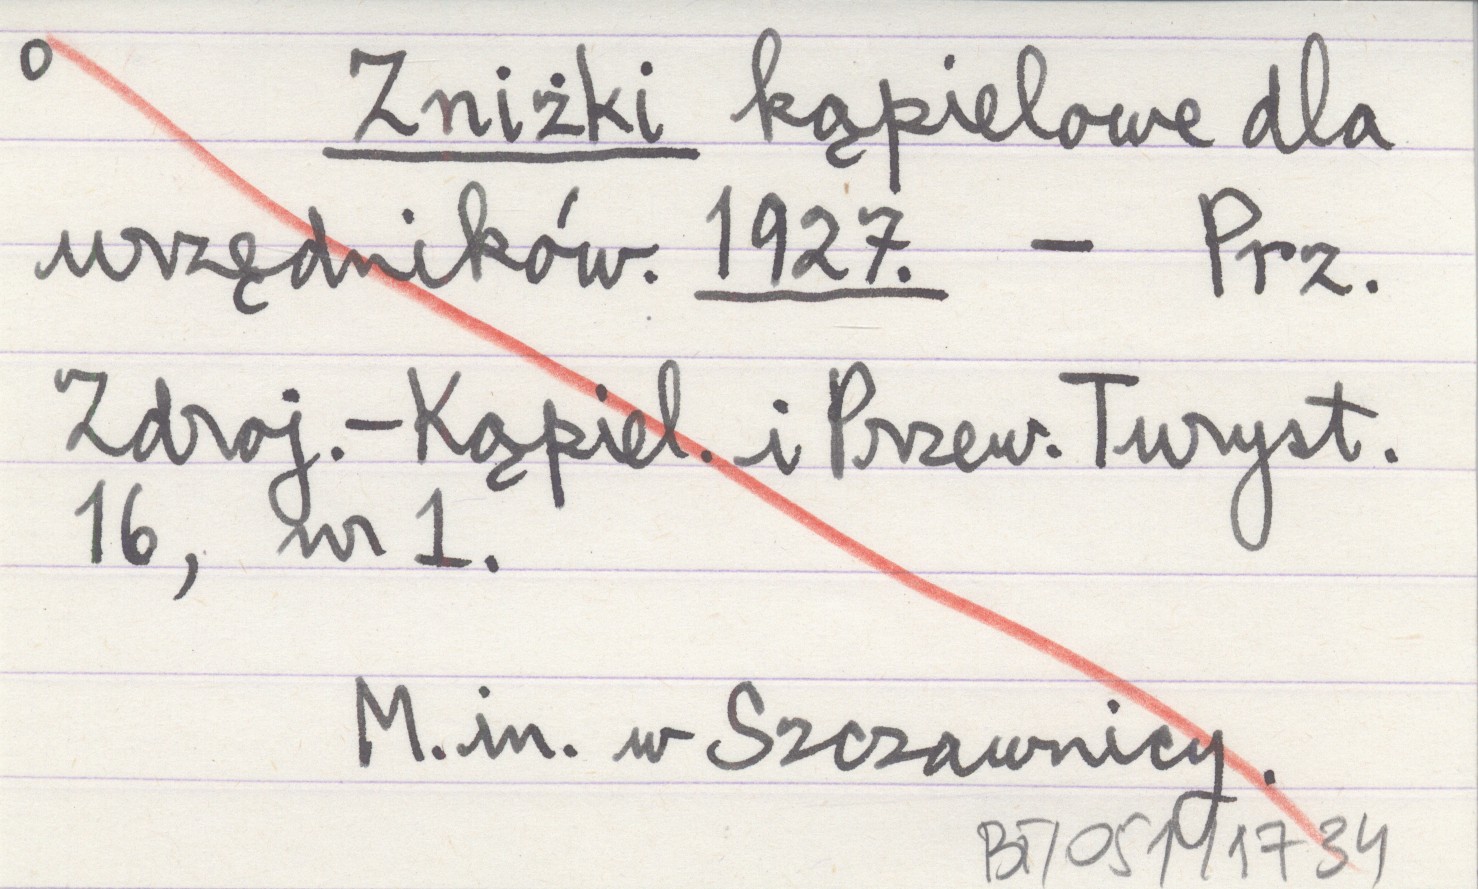 o Zniżki kąpielowe dla
urzędników. 1927. – Prz.
Zdroj.-Kąpiel. i Przew. Turyst.
16, nr 1.
M.in. w Szczawnicy.